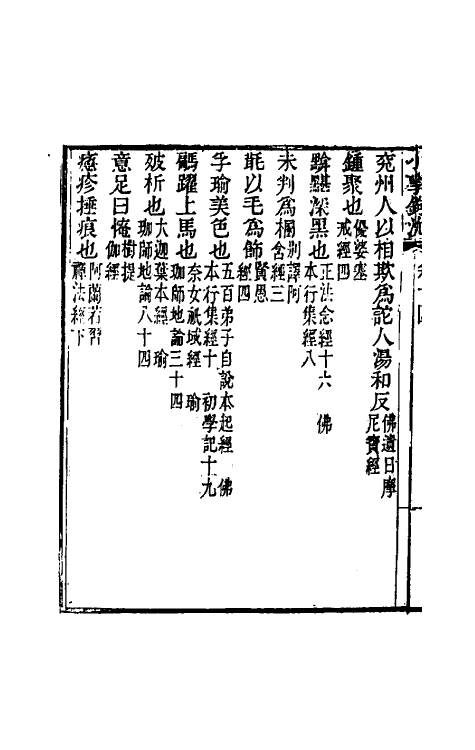 兖州人以相欺爲詑人湯和反佛遺日摩尼寶經
鍾聚也優婆塞戒經四
黭黮深黑也正法念經十六 佛本行集經八
未判爲楋別譯阿含經三
毦以毛爲飾賢愚經四
孚瑜美色也五百弟子自說本起經 佛本行集經十 初學記十九
騗躍上馬也奈女祇域經 瑜珈師地論三十四
破析也大迦葉本經 瑜珈師地論八十四
意足曰惓樹提伽經
㿔疹捶痕也阿蘭若習禪法經下